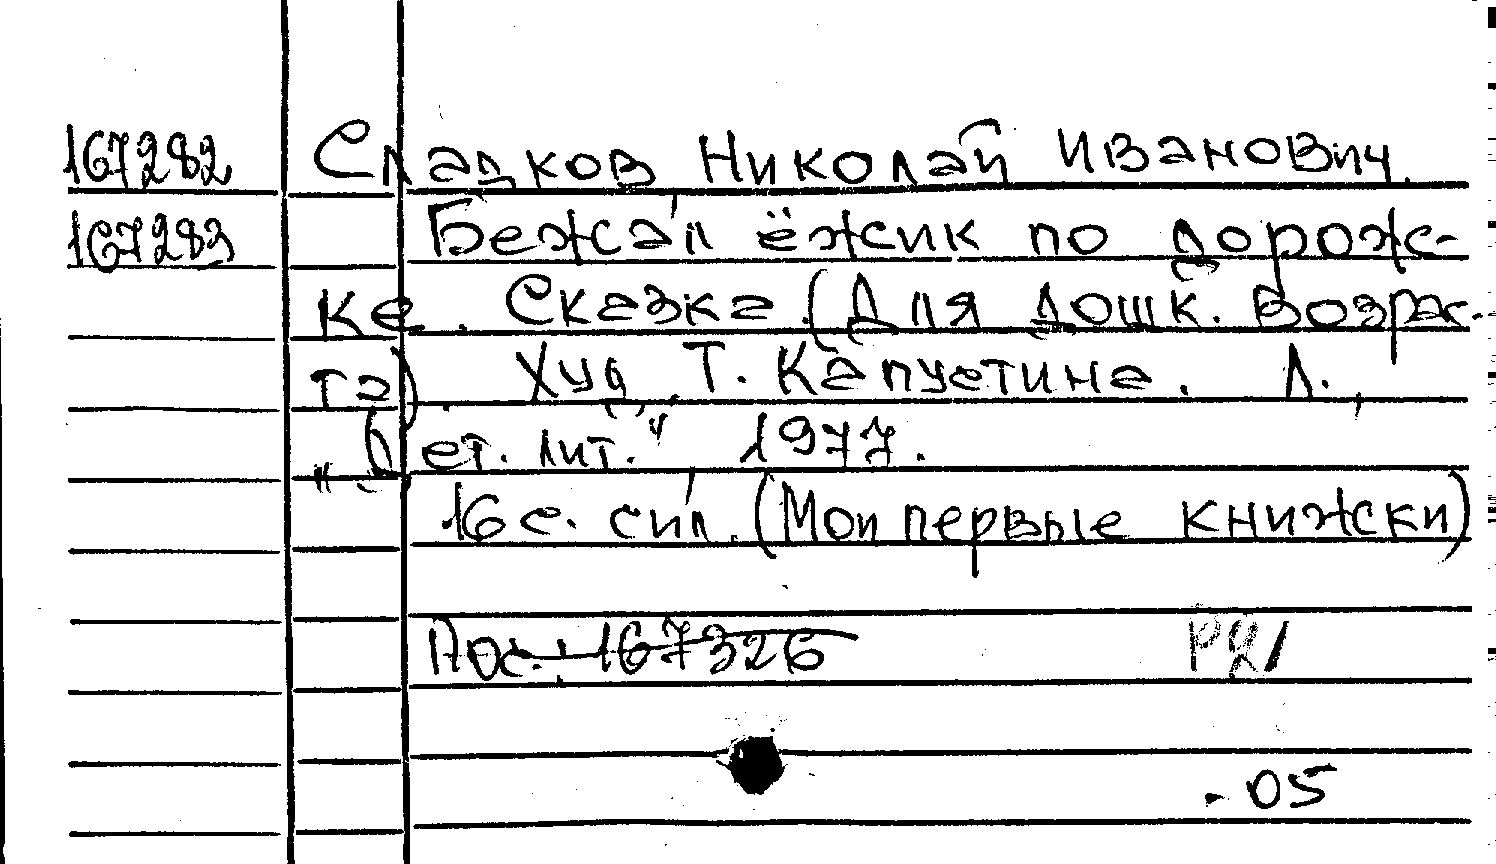 167282 Сладков Николай Иванович.
167283 Бежал ёжик по дорож-
ке. Сказка. (Для дошк. возрас-
та). Худ. Т. Капустина. Л.,
"Дет. лит." 1977.
16 с. с ил. (Мои первые книжки)
Пос.: 167326
Р21
- 05